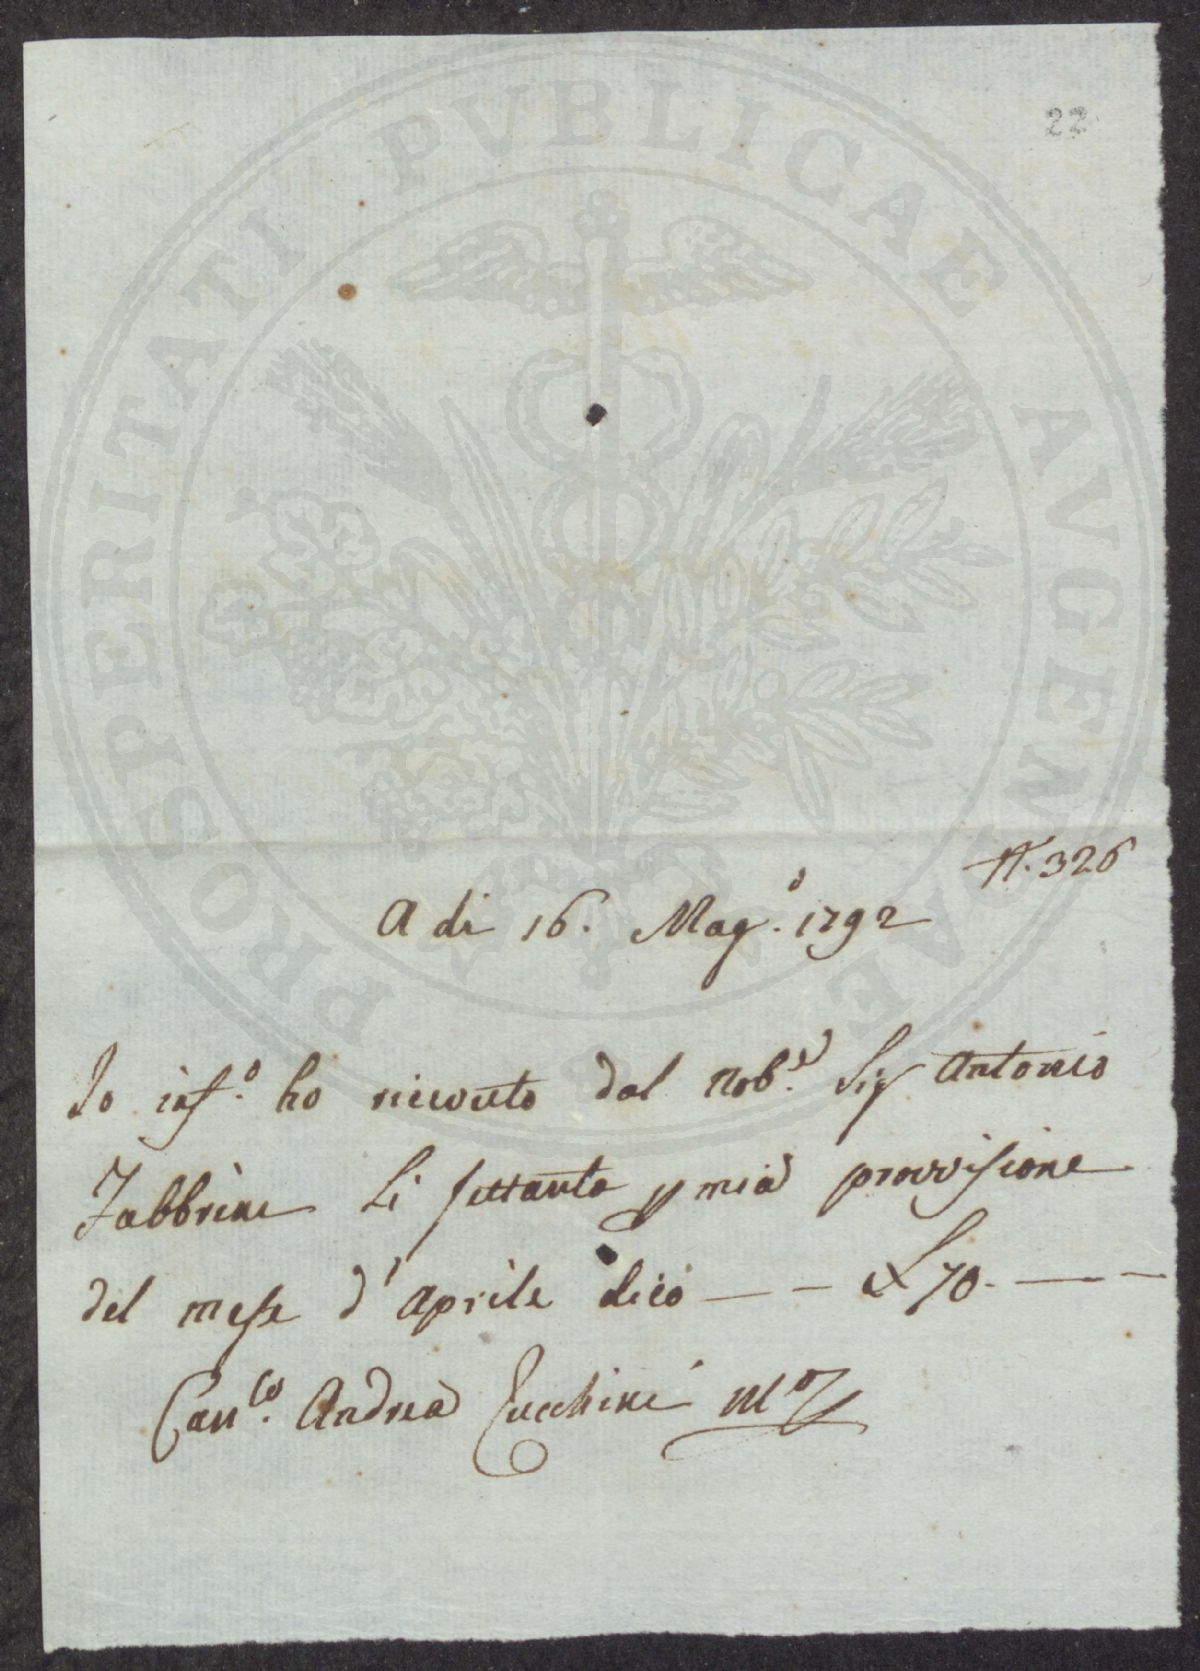 22
PROSPERITATI PVBLICAE AVGENDAE
N. 326
A di 16. Mag.º 1792
Io inf.º ho ricevuto dal Nob.e Sig Antonio
Fabbrini Li settanta p mia provvisione
del mese d'Aprile dico — — £ 70. — —
Can.co Andrea Zucchini Mo